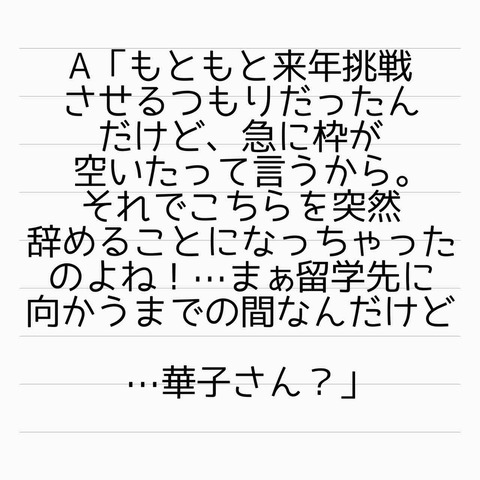 A「もともと来年挑戦
させるつもりだったん
だけど、急に枠が
空いたって言うから。
それでこちらを突然
辞めることになっちゃった
のよね！…まぁ留学先に
向かうまでの間なんだけど
…華子さん？」